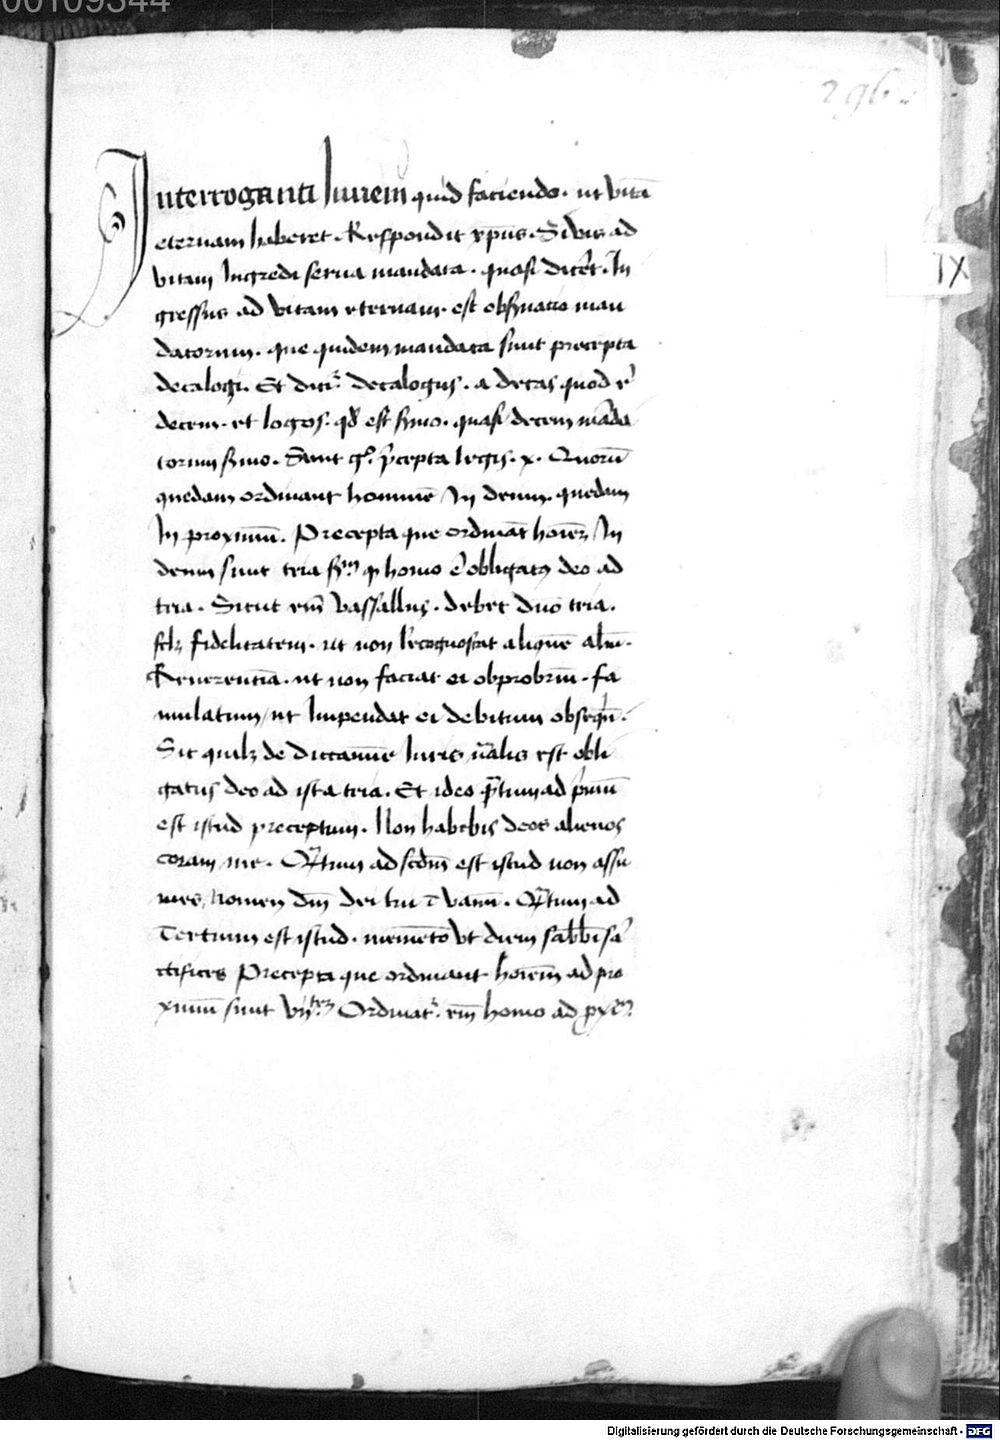 00109344
296
Interroganti Iuuem quid faciendo. ut vitā
eternam haberet. Respondit xp̄us. Si vis ad
vitam Ingredi serua mandata. quasi dicēt. In
gressus ad vitam eternam. est obs̄uatio man
datorum. que quidem mandata sunt precepta
decalogi. Et dicit᷑ decalogus. a decas quod ē
decem. et logos. qd̄ est s̄mo. quasi decem mādā
torum s̄mo. Sunt gͦ. p̄cepta legis. x. Quorū
quedam ordinant hominē In deum. quedam
In proximū. Precepta que ordināt hoīez In
deum sunt tria sm̄ ꝙ homo ē obligatꝰ deo ad
tria. Sicut em̄ vassallus. debet dn̄o tria.
scꝫ fidelitatem. ut non recognoscat aliquē aliū.
Reuerentiā. ut non faciat ei obprobriū. fa
mulatum, ut Impendat ei debitum obsequiū.
Sic quilꝫ de dictamīe Iuris nālis est obli
gatus deo ad ista tria. Et ideo q̄tum ad p̄mū
est istud preceptum. Non habebis deos alienos
coram me. Q̄tum ad scd̄m est istud non assu
mes nomen dn̄i dei tui ī vanū. Q̄tum ad
Tertium est istud. memēto vt diem sabb̄i sā
ctifices Precepta que ordinant hoīem ad pro
ximū sunt vij Ordinat᷑ em̄ homo ad
IX
Digitalisierung gefördert durch die Deutsche Forschungsgemeinschaft - DFG